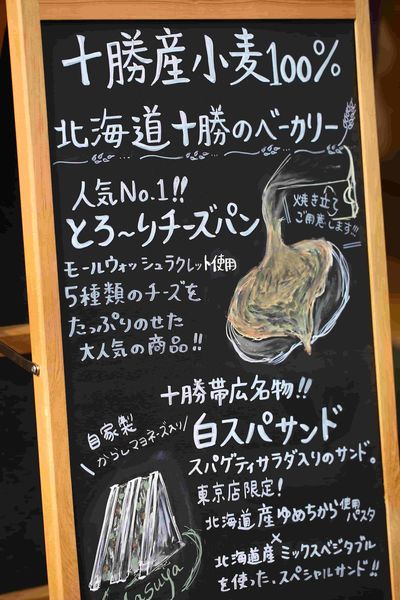 十勝産小麦100%
北海道十勝のベーカリー
人気No.1!!
とろ〜りチーズパン
焼き立て
ご用意します!!!
モールウォッシュラクレット使用
5種類のチーズを
たっぷりのせた
大人気の商品!!
十勝帯広名物!!
自家製
からしマヨネーズ入り
白スパサンド
スパゲティサラダ入りのサンド。
東京店限定!
北海道産ゆめちから使用パスタ
×
北海道産ミックスベジタブル
を使った、スペシャルサンド!!
Masuya